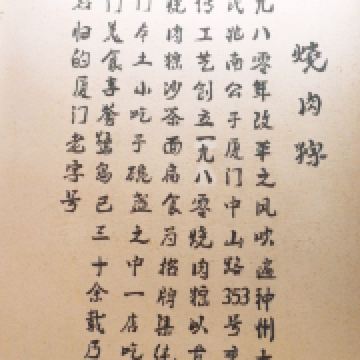 燒肉粽
九八零年改革之风吹遍神州大
氏兆南公于厦门中山路353号
传工艺创立一九八零烧肉粽以古
烧肉粽沙茶面扁食为招牌集
门本土小吃于碗盏之中一店吃
门美食享誉鹭岛已三十余载乃
名归的厦门老字号